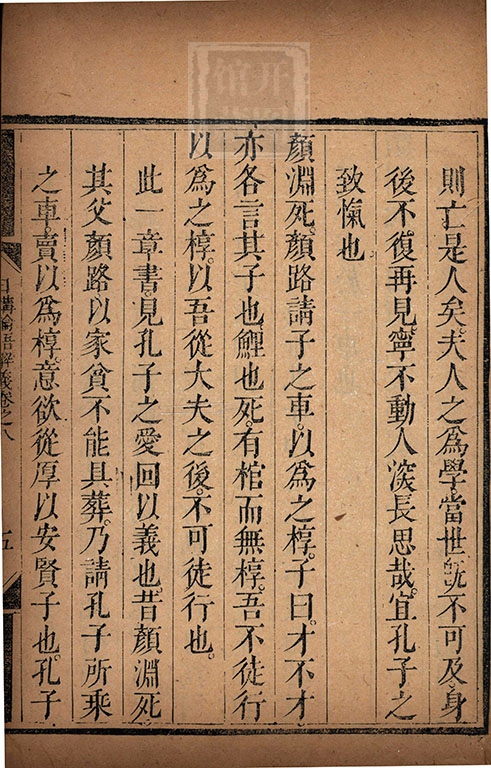 則亡是人矣。夫人之爲學當世旣不可及身
後不復再見寧不動人深長思哉。宜孔子之
致愾也
顏淵死。顏路請子之車。以爲之椁。子曰。才不才
亦各言其子也。鯉也死。有棺而無椁。吾不徒行
以爲之椁。以吾從大夫之後。不可徒行也。
此一章書。見孔子之愛回以義也。昔顏淵死
其父顏路以家貧不能具葬。乃請孔子所乘
之車。賣以爲椁。意欲從厚以安賢子也。孔子
日講論語解義卷之八
十五